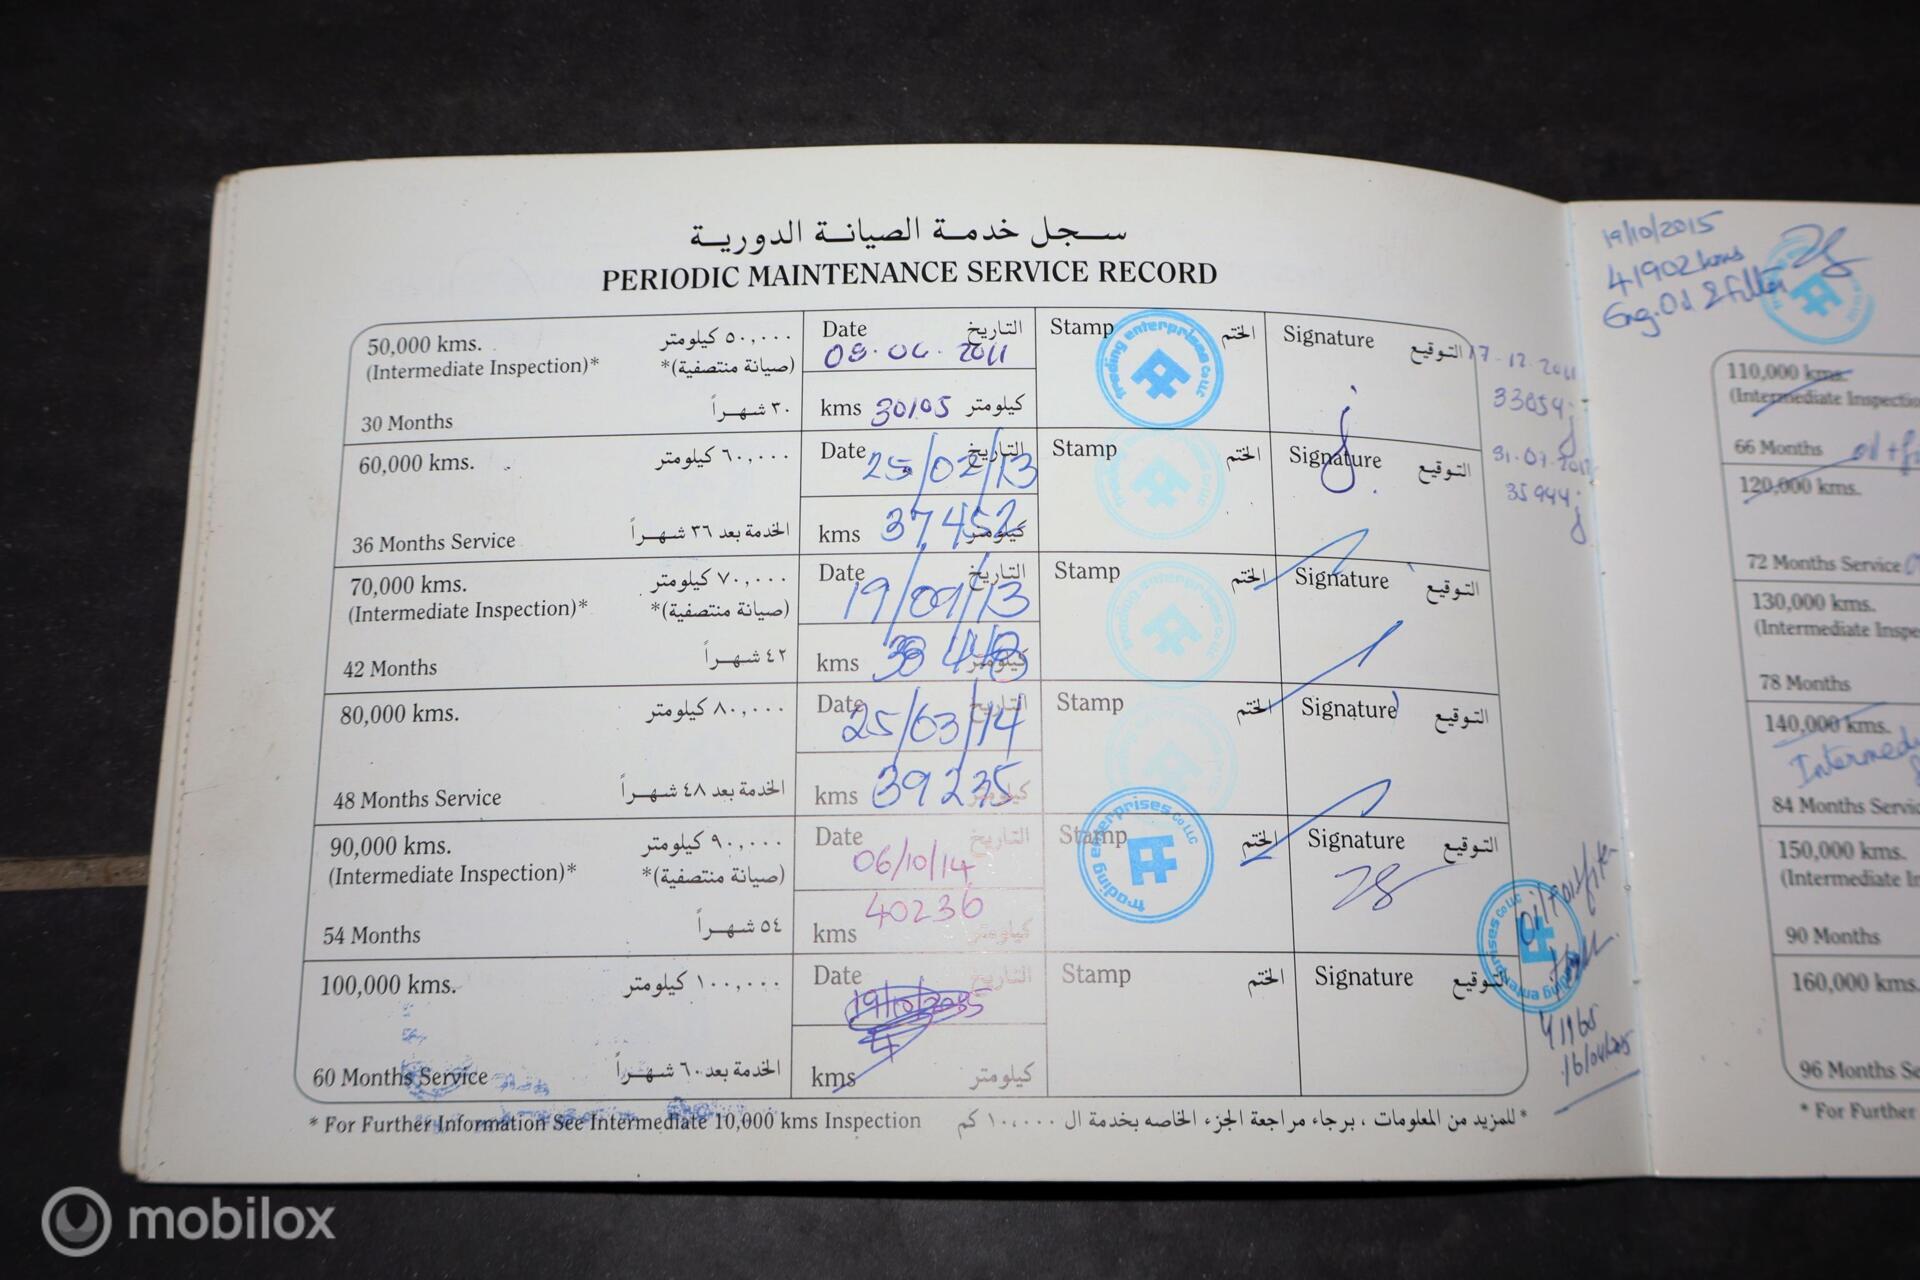 سجل خدمة الصيانة الدورية
PERIODIC MAINTENANCE SERVICE RECORD
50,000 kms. ٥٠,٠٠٠ كيلومتر
(Intermediate Inspection)* (صيانة منتصفية)*
30 Months ٣٠ شهراً
Date التاريخ
08.06.2011
kms 30105 كيلومتر
Stamp الختم
trading enterprises Co LLC
Signature التوقيع
17.12.2011
33054
60,000 kms. ٦٠,٠٠٠ كيلومتر
36 Months Service الخدمة بعد ٣٦ شهراً
Date التاريخ
25/02/13
kms 37452 كيلومتر
Stamp الختم
trading enterprises Co LLC
Signature التوقيع
35944
70,000 kms. ٧٠,٠٠٠ كيلومتر
(Intermediate Inspection)* (صيانة منتصفية)*
42 Months ٤٢ شهراً
Date التاريخ
19/09/13
kms كيلومتر
Stamp الختم
trading enterprises Co LLC
Signature التوقيع
80,000 kms. ٨٠,٠٠٠ كيلومتر
48 Months Service الخدمة بعد ٤٨ شهراً
Date التاريخ
25/03/14
kms 39235 كيلومتر
Stamp الختم
Signature التوقيع
90,000 kms. ٩٠,٠٠٠ كيلومتر
(Intermediate Inspection)* (صيانة منتصفية)*
54 Months ٥٤ شهراً
Date التاريخ
06/10/14
40236
kms كيلومتر
Stamp الختم
trading enterprises Co LLC
Signature التوقيع
100,000 kms. ١٠٠,٠٠٠ كيلومتر
60 Months Service الخدمة بعد ٦٠ شهراً
Date التاريخ
kms كيلومتر
Stamp الختم
Signature التوقيع
trading enterprises Co LLC
41965
16/04/2015
* For Further Information See Intermediate 10,000 kms Inspection
* للمزيد من المعلومات ، برجاء مراجعة الجزء الخاصه بخدمة ال ١٠,٠٠٠ كم
19/10/2015
41902 kms
Eng. Oil & Filter
110,000 kms.
(Intermediate Inspection
66 Months
120,000 kms.
72 Months Service
130,000 kms.
(Intermediate Inspe
78 Months
140,000 kms.
Intermedi
84 Months Servic
150,000 kms.
(Intermediate In
90 Months
160,000 kms.
96 Months Se
* For Further
mobilox